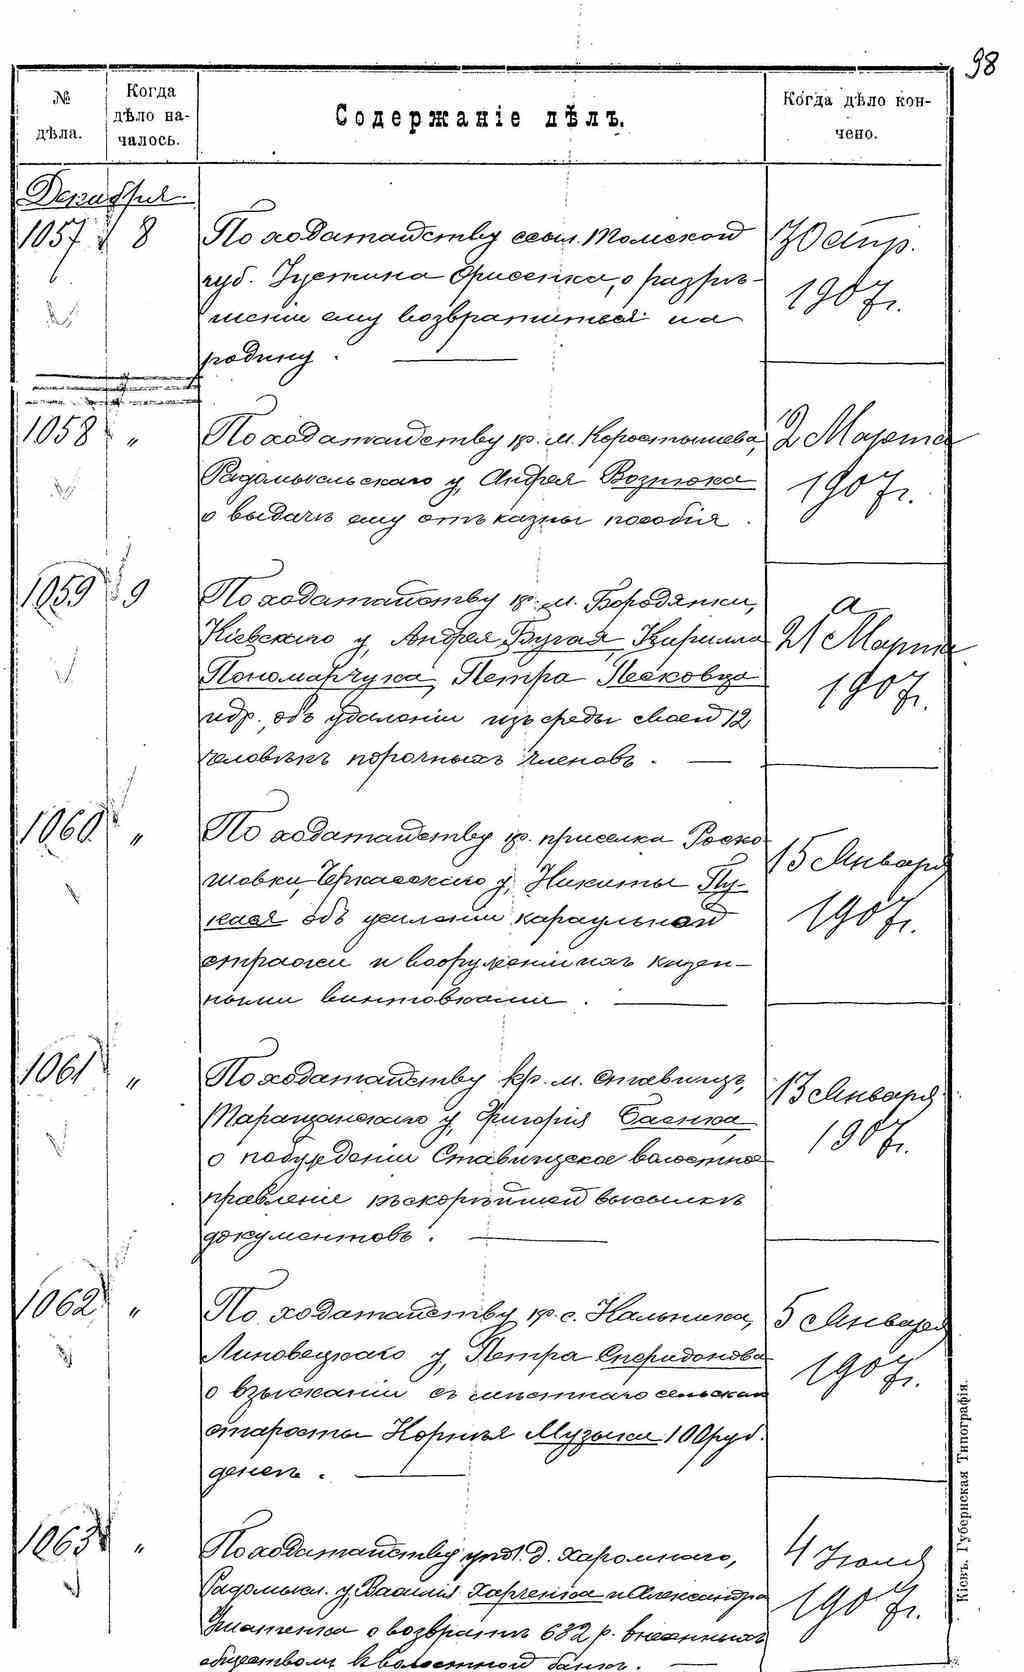 98
№ дѣла.
Когда дѣло началось.
Содержаніе дѣлъ.
Когда дѣло кончено.
Декабря.
1057 8 По ходатайству ссыл. Томской 30 апр.
губ. Густина Орисенка, о разрѣ- 1907 г.
шеніи ему возвратиться на
родину.
1058 " По ходатайству кр. м. Коростышева, 2 Марта
Радомысльскаго у, Андрея Вознюка 1907 г.
о выдачѣ ему отъ казны пособія.
1059 9 По ходатайству кр. м. Бородянки,
Кіевскаго у, Андрея Бугая, Кирилла 21 Марта
Пономарчука, Петра Песковца 1907 г.
идр., объ удаленіи изъ среды своей 12
человѣкъ порочныхъ членовъ.
1060 " По ходатайству кр. приселка Роско-
шовки, Черкасскаго у, Никиты Пу- 15 Января
кася объ усиленіи караульной 1907 г.
стражи и вооруженіи ихъ казен-
ными винтовками.
1061 " По ходатайству кр. м. Ставищъ, 13 Января
Таращанскаго у, Григорія Баенка, 1907 г.
о побужденіи Ставищское волостное
правленіе къ скорѣйшей высылкѣ
документовъ.
1062 " По ходатайству кр. с. Кальника, 5 Января
Липовецкаго у, Петра Спиридонова 1907 г.
о взысканіи съ мѣстнаго сельскаго
старосты Корнѣя Музыки 100 руб.
денегъ.
1063 " По ходатайству упол. д. 4 Іюля
Радомысл. у, Василія Харченка и Александра 1907 г.
Игнатенка о возвратѣ 682 р. внесенныхъ
обществомъ въ волостной банкъ.
Кіевъ. Губернская Типографія.